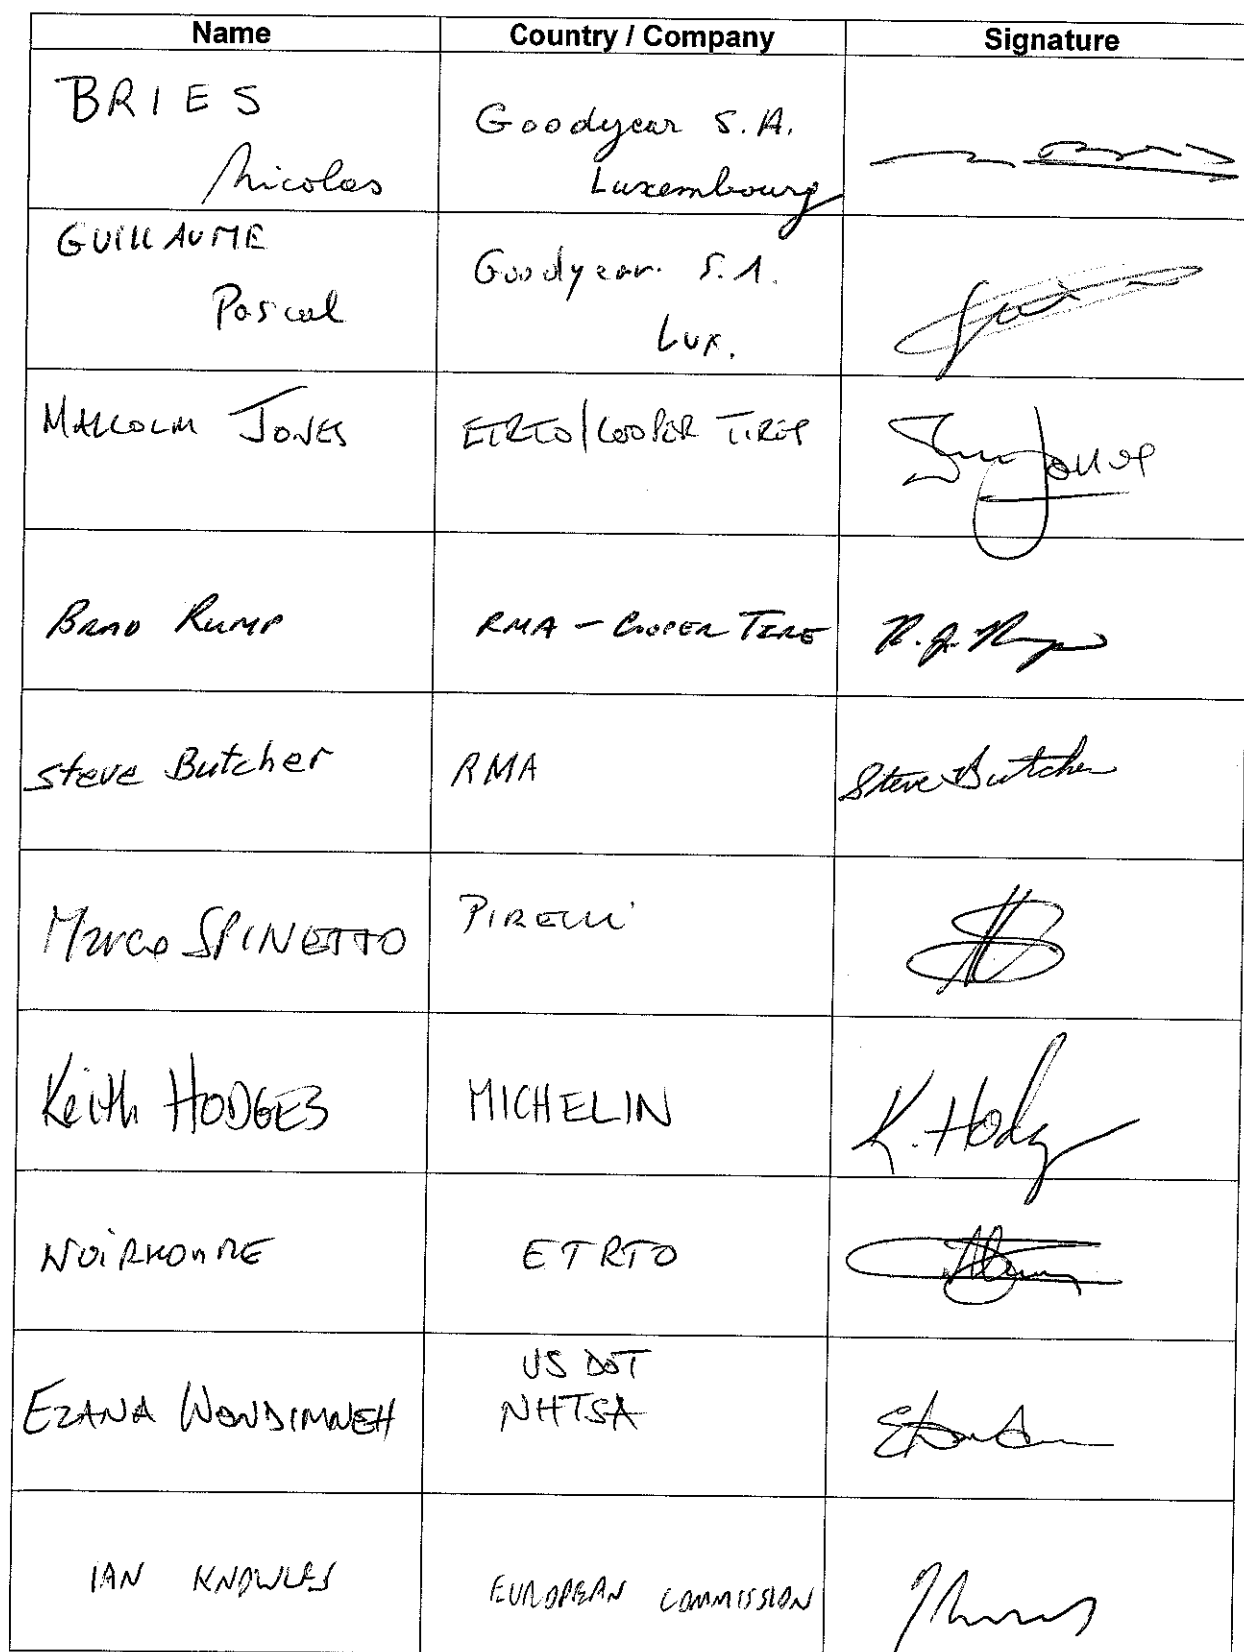 Name Country / Company Signature
BRIES
Nicolas
Goodyear S.A.
Luxembourg
GUILLAUME
Pascal
Goodyear S.A.
Lux.
MALCOLM JONES ETRTO/COOPER TIRES Jones
BRAD RUMP RMA - COOPER TIRE R. J. Rump
Steve Butcher RMA Steve Butcher
Marco SPINETTO PIRELLI
Keith HODGES MICHELIN K. Hodg
NOIRHOMME ETRTO
EZANA WONDIMNEH
US DOT
NHTSA
IAN KNOWLES EUROPEAN COMMISSION